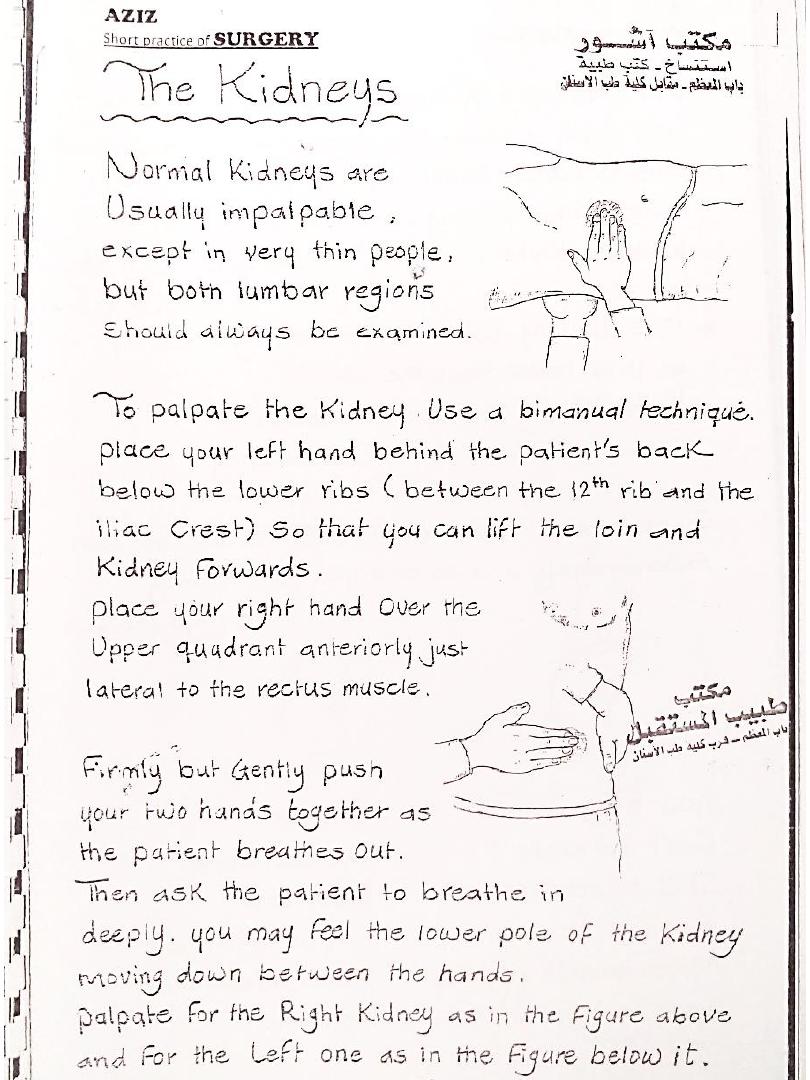 AZIZ
Short practice of SURGERY
مكتب آشور
استنساخ - كتب طبية
باب المعظم - مقابل كلية طب الاسنان
The Kidneys
Normal Kidneys are
Usually impalpable ,
except in very thin people,
but both lumbar regions
Should always be examined.
To palpate the Kidney Use a bimanual technique.
place your left hand behind the patient's back
below the lower ribs ( between the 12th rib and the
iliac Crest) So that you can lift the loin and
Kidney Forwards.
place your right hand Over the
Upper quadrant anteriorly just
lateral to the rectus muscle.
مكتب
طبيب المستقبل
باب المعظم - قرب كلية طب الأسنان
Firmly but Gently push
your two hands together as
the patient breathes out.
Then ask the patient to breathe in
deeply. you may feel the lower pole of the Kidney
moving down between the hands.
palpate for the Right Kidney as in the Figure above
and for the Left one as in the Figure below it.